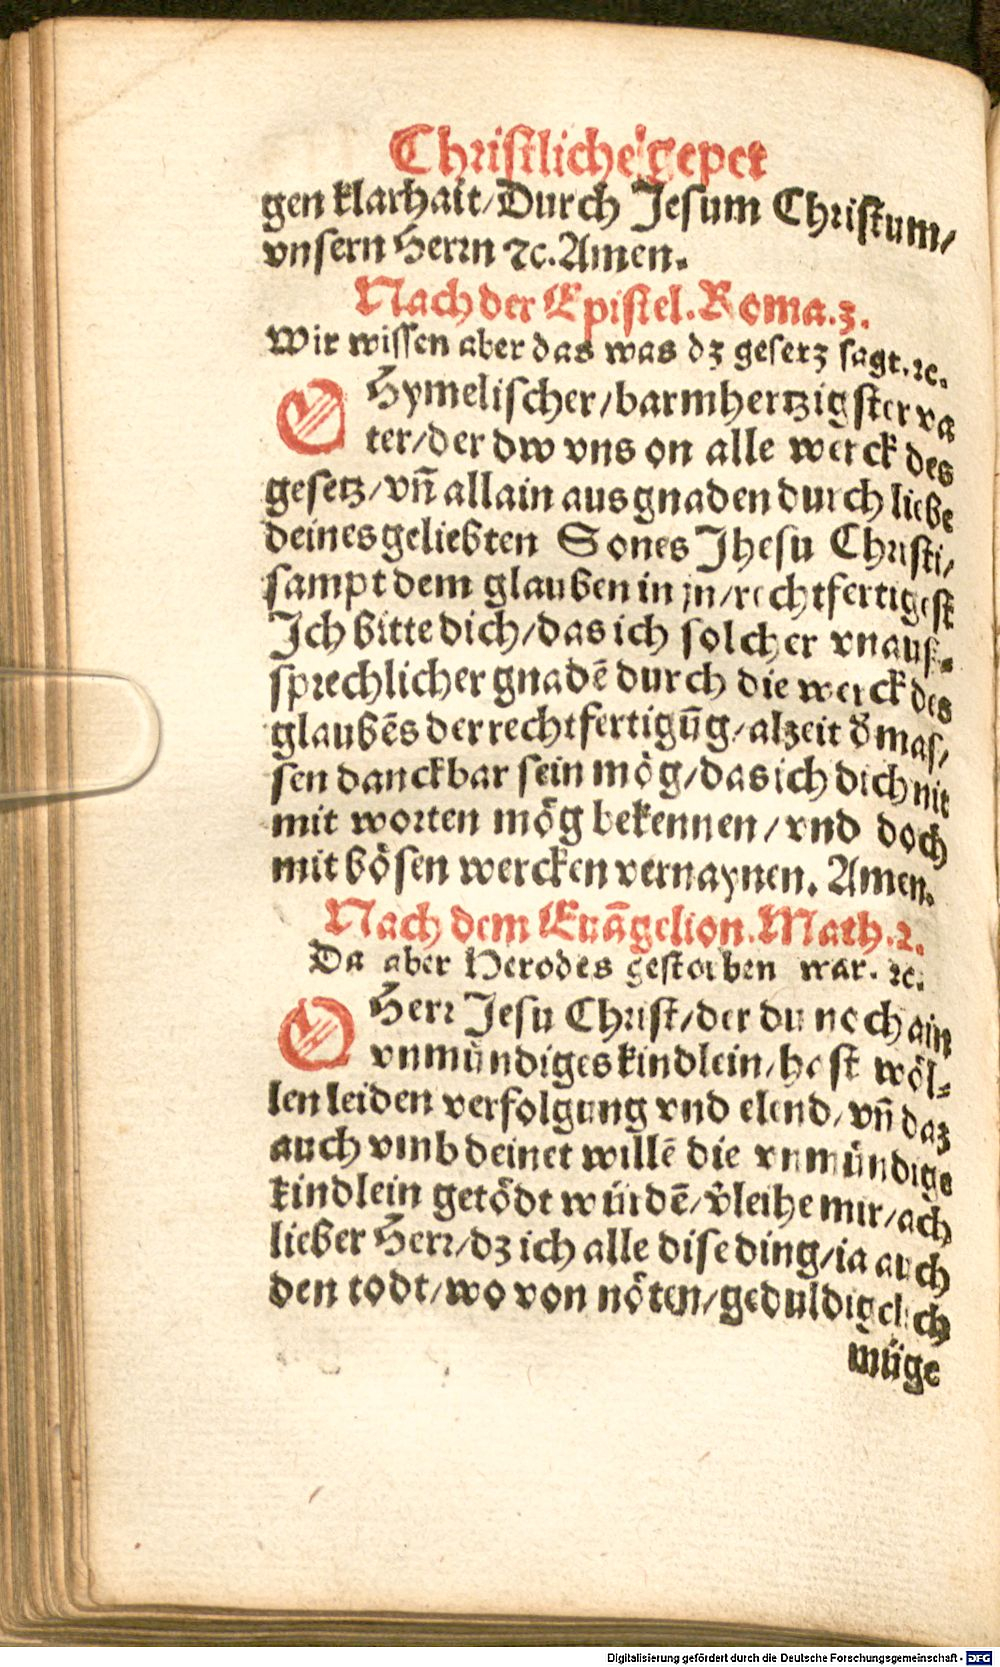 Christliche gepet
gen klarhait/Durch Jesum Christum/
vnsern Herrn ꝛc. Amen.
Nach der Epistel. Roma. 3.
Wir wissen aber das was dz gesetz sagt. ꝛc.
O Hymelischer/barmhertzigster va
ter/der dw vns on alle werck des
gesetz/vñ allain aus gnaden durch liebe
deines geliebten Sones Jhesu Christi/
sampt dem glauben in jn/rechtfertigest
Ich bitte dich/das ich solcher vnauß-
sprechlicher gnadē durch die werck des
glaubēs der rechtfertigūg/alzeit d̄mas/
sen danckbar sein mög/das ich dich nit
mit worten mög bekennen/vnd doch
mit bösen wercken vernaynen. Amen.
Nach dem Euāgelion. Math. 2.
Da aber Herodes gestorben war. ꝛc.
O Herr Jesu Christ/der du noch ain
vnmündiges kindlein/hast wöl-
len leiden verfolgung vnd elend/vñ daz
auch vmb deinet willē die vnmündige
kindlein getödt würdē/v̄leihe mir/ach
lieber Herr/dz ich alle dise ding/ia auch
den todt/wo von nöten/geduldigclich
müge
Digitalisierung gefördert durch die Deutsche Forschungsgemeinschaft - DFG